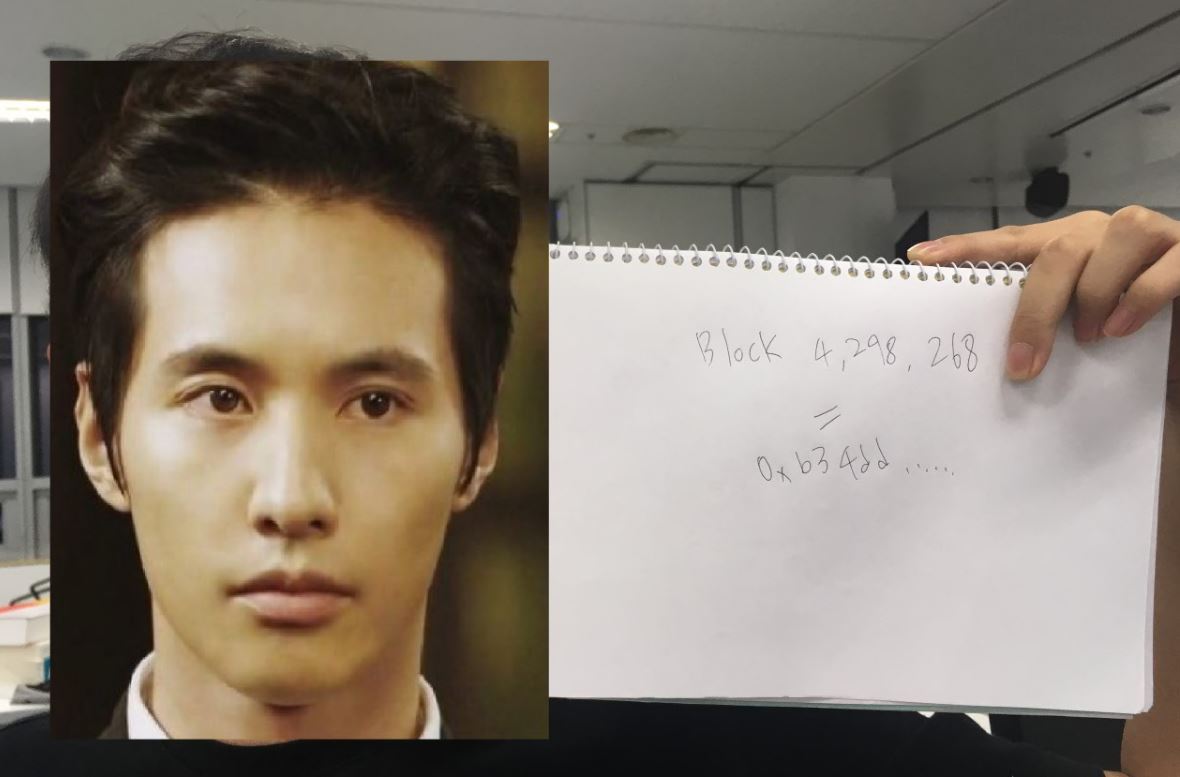 Block 4,298,268
=
0xb34dd......